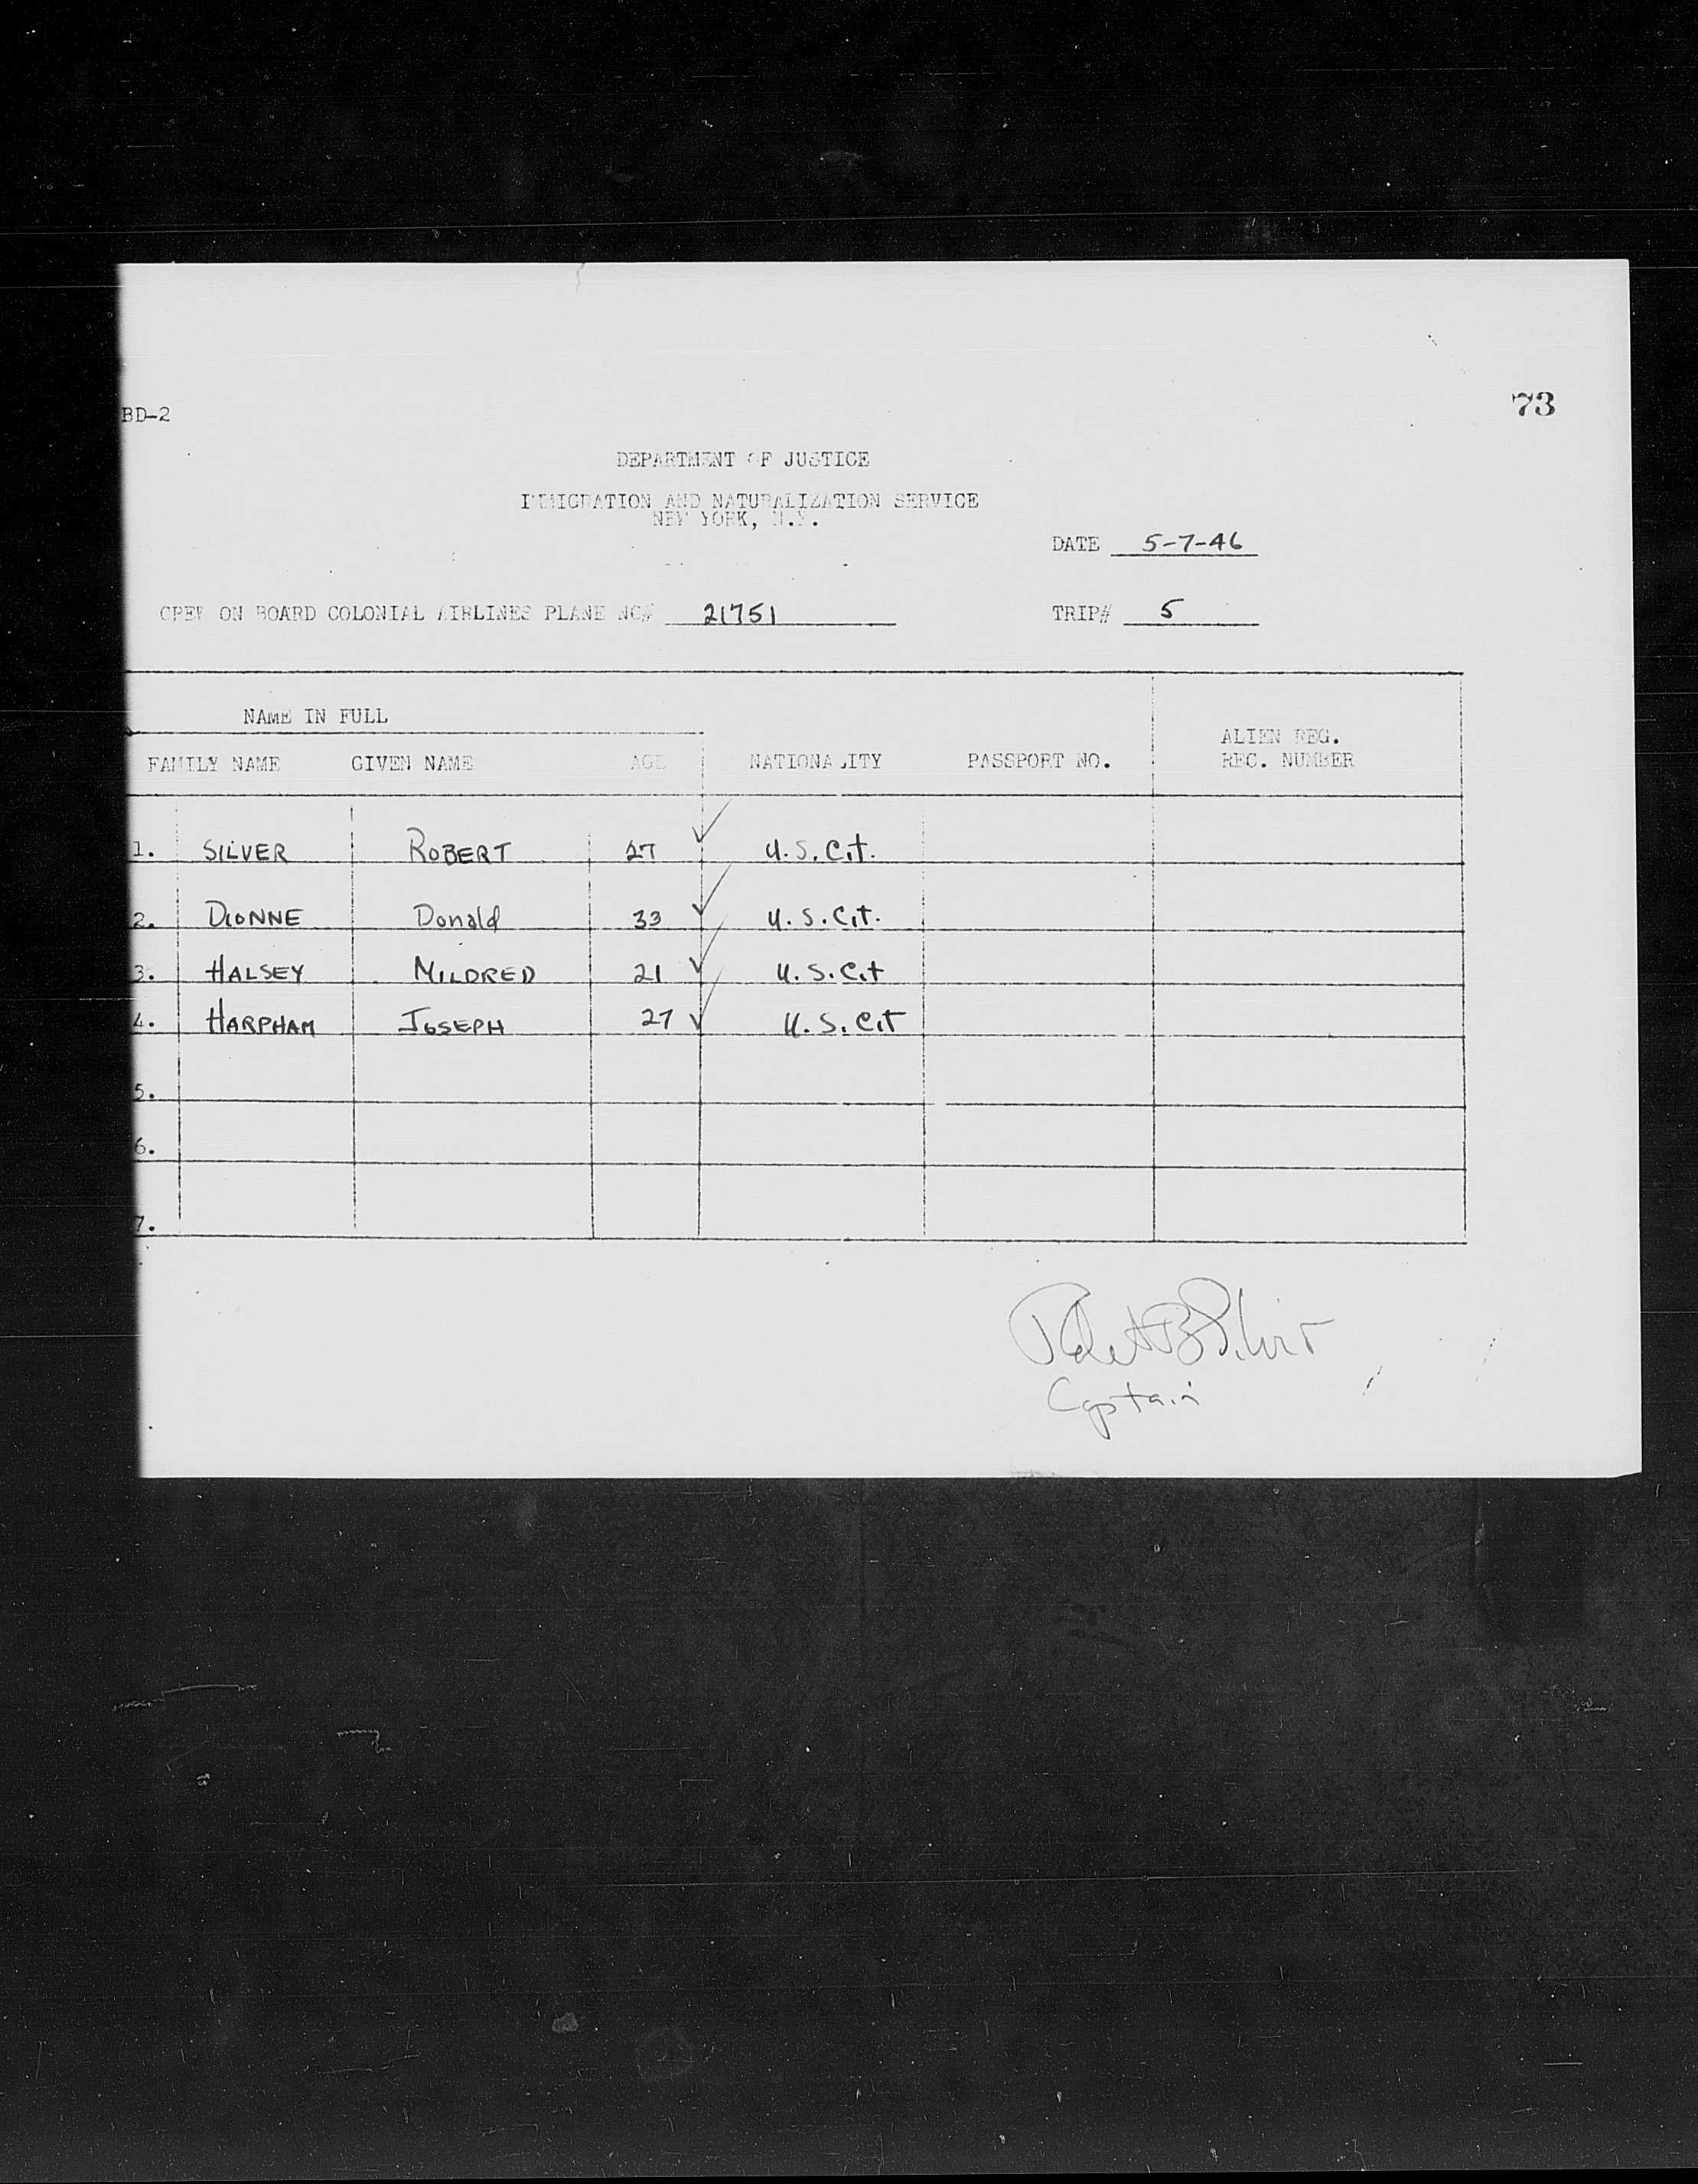 BD-2
73
DEPARTMENT OF JUSTICE
IMMIGRATION AND NATURALIZATION SERVICE
NEW YORK, N.Y.
DATE 5-7-46
CREW ON BOARD COLONIAL AIRLINES PLANE NO# 21751 TRIP# 5
NAME IN FULL
FAMILY NAME GIVEN NAME AGE NATIONALITY PASSPORT NO. ALIEN REG. REC. NUMBER
1. SILVER ROBERT 27 U.S. Cit.
2. DIONNE Donald 33 U.S. Cit.
3. HALSEY MILDRED 21 U.S. Cit
4. HARPHAM JOSEPH 27 U.S. Cit
5.
6.
7.
Robert B Silver
Captain